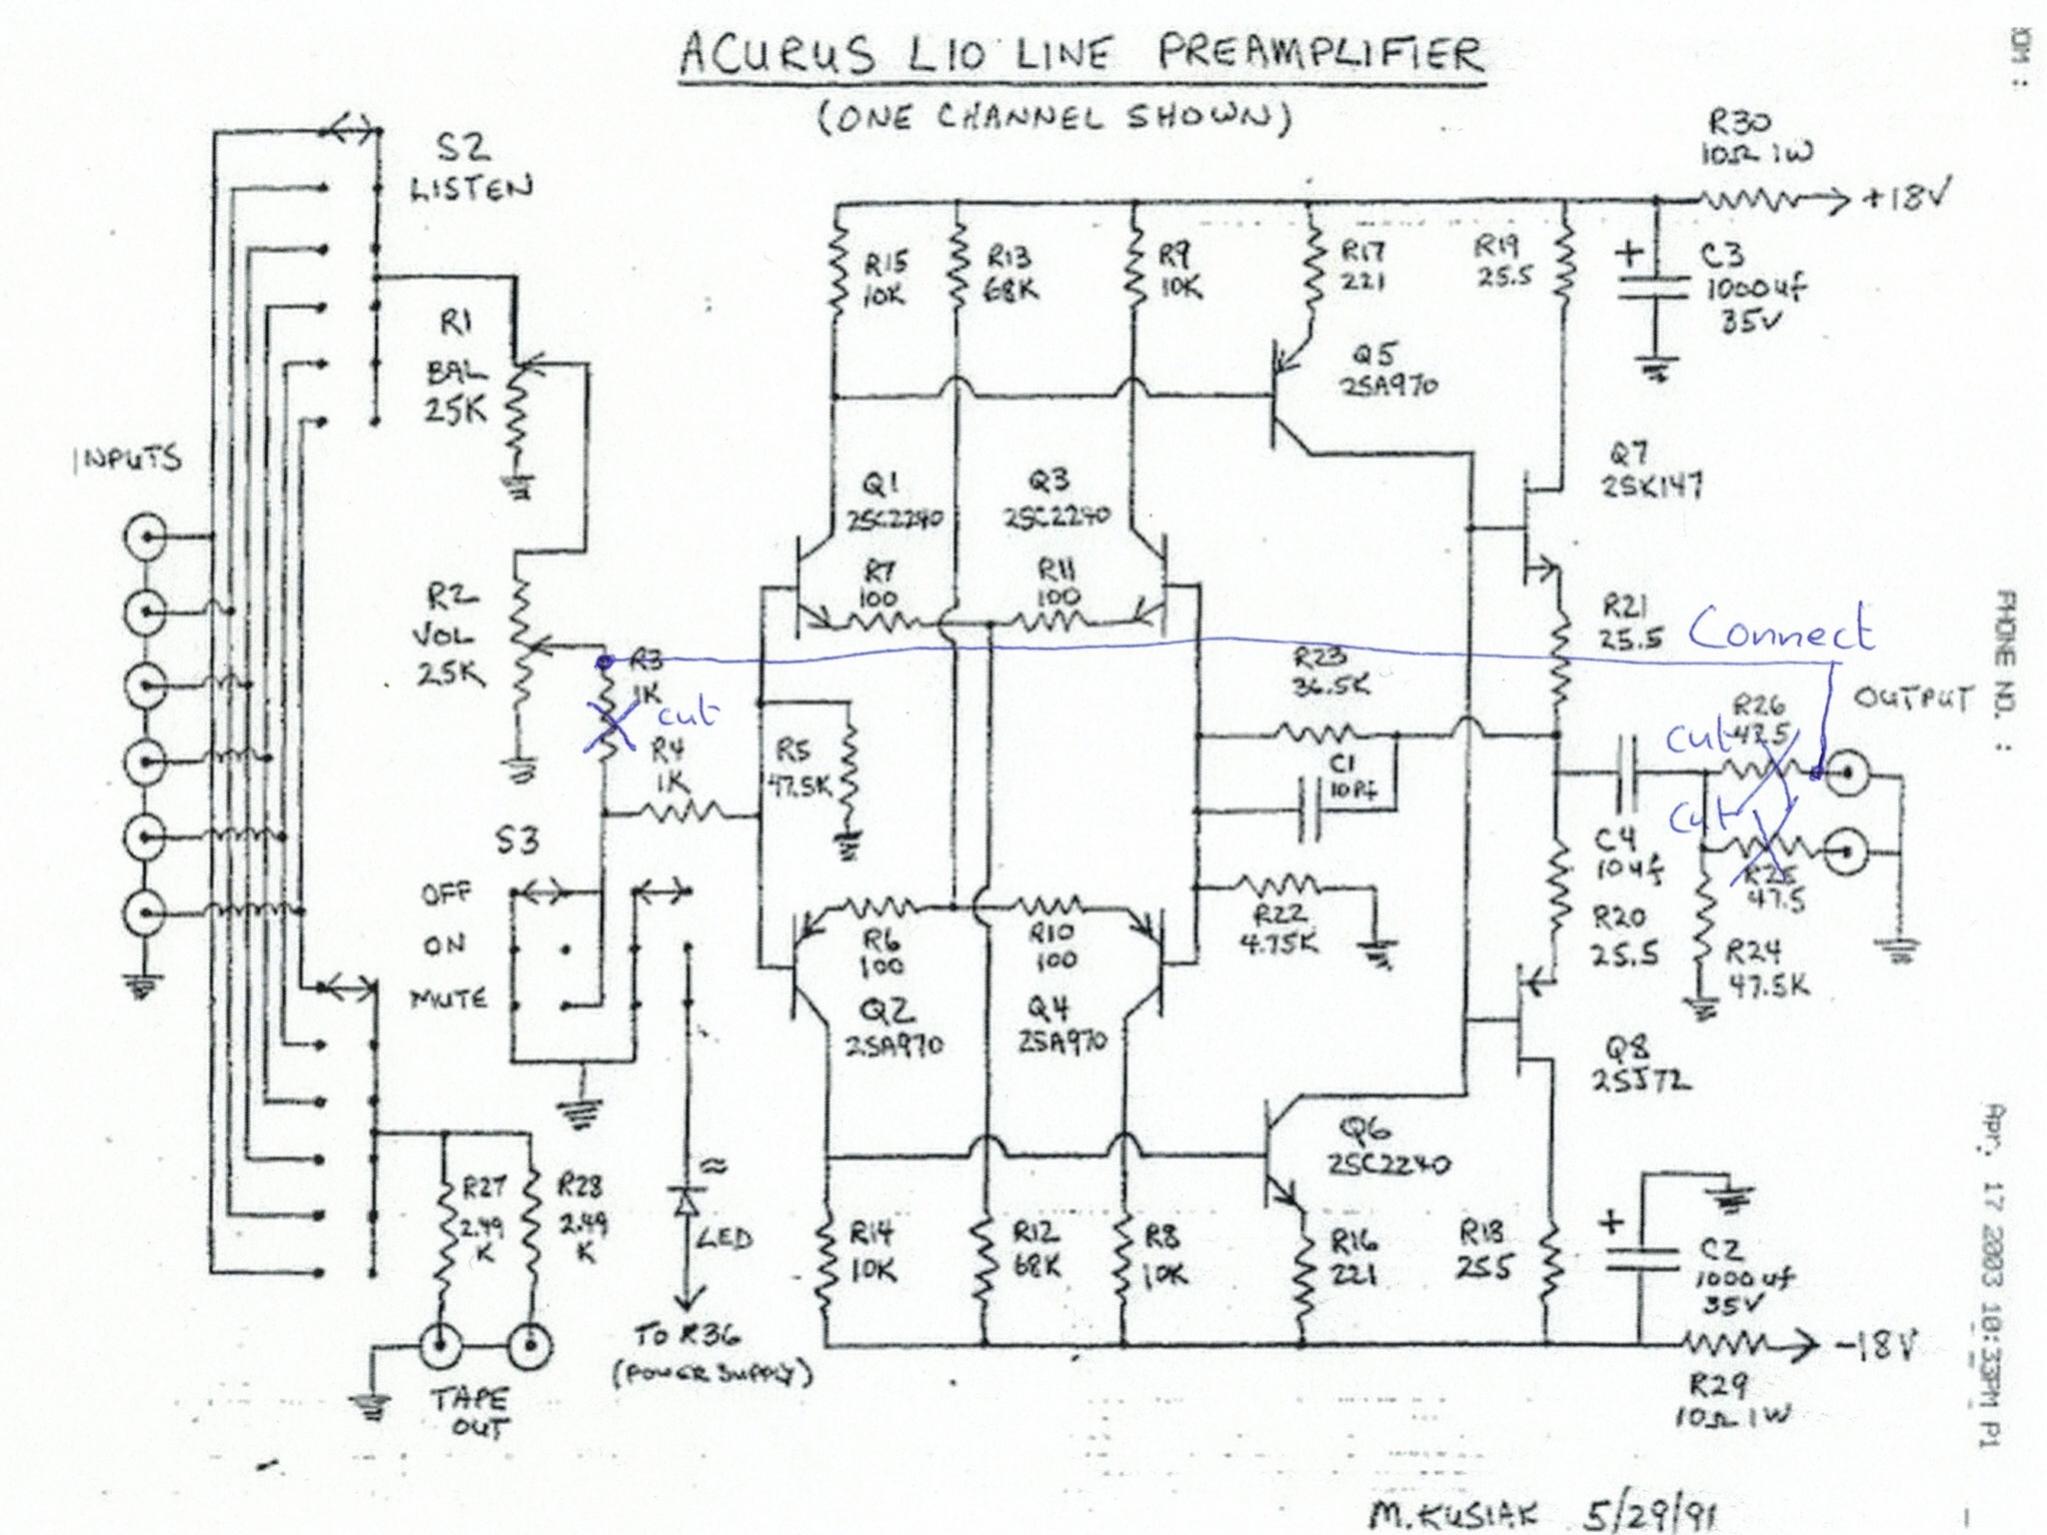 ACURUS L10 LINE PREAMPLIFIER
(ONE CHANNEL SHOWN)
S2
LISTEN
R1
BAL
25K
INPUTS
R2
VOL
25K
R3
1K
cut
R4
1K
S3
OFF
ON
MUTE
R27
2.49
K
R28
2.49
K
TAPE
OUT
LED
TO R36
(POWER SUPPLY)
R15
10K
R13
68K
R9
10K
R17
221
R19
25.5
R30
10Ω 1W
+18V
+
C3
1000uf
35V
Q5
2SA970
Q1
2SC2240
Q3
2SC2240
Q7
2SK147
R7
100
R11
100
R21
25.5
Connect
R23
36.5K
OUTPUT
R5
47.5K
C1
10Pf
cut
R26
47.5
cut
R25
47.5
C4
10uf
R22
4.75K
R20
25.5
R24
47.5K
R6
100
R10
100
Q2
2SA970
Q4
2SA970
Q8
2SJ72
Q6
2SC2240
R14
10K
R12
68K
R8
10K
R16
221
R18
25.5
+
C2
1000uf
35V
-18V
R29
10Ω 1W
M.KUSIAK 5/29/91
PHONE NO. :
Apr. 17 2003 10:33PM P1